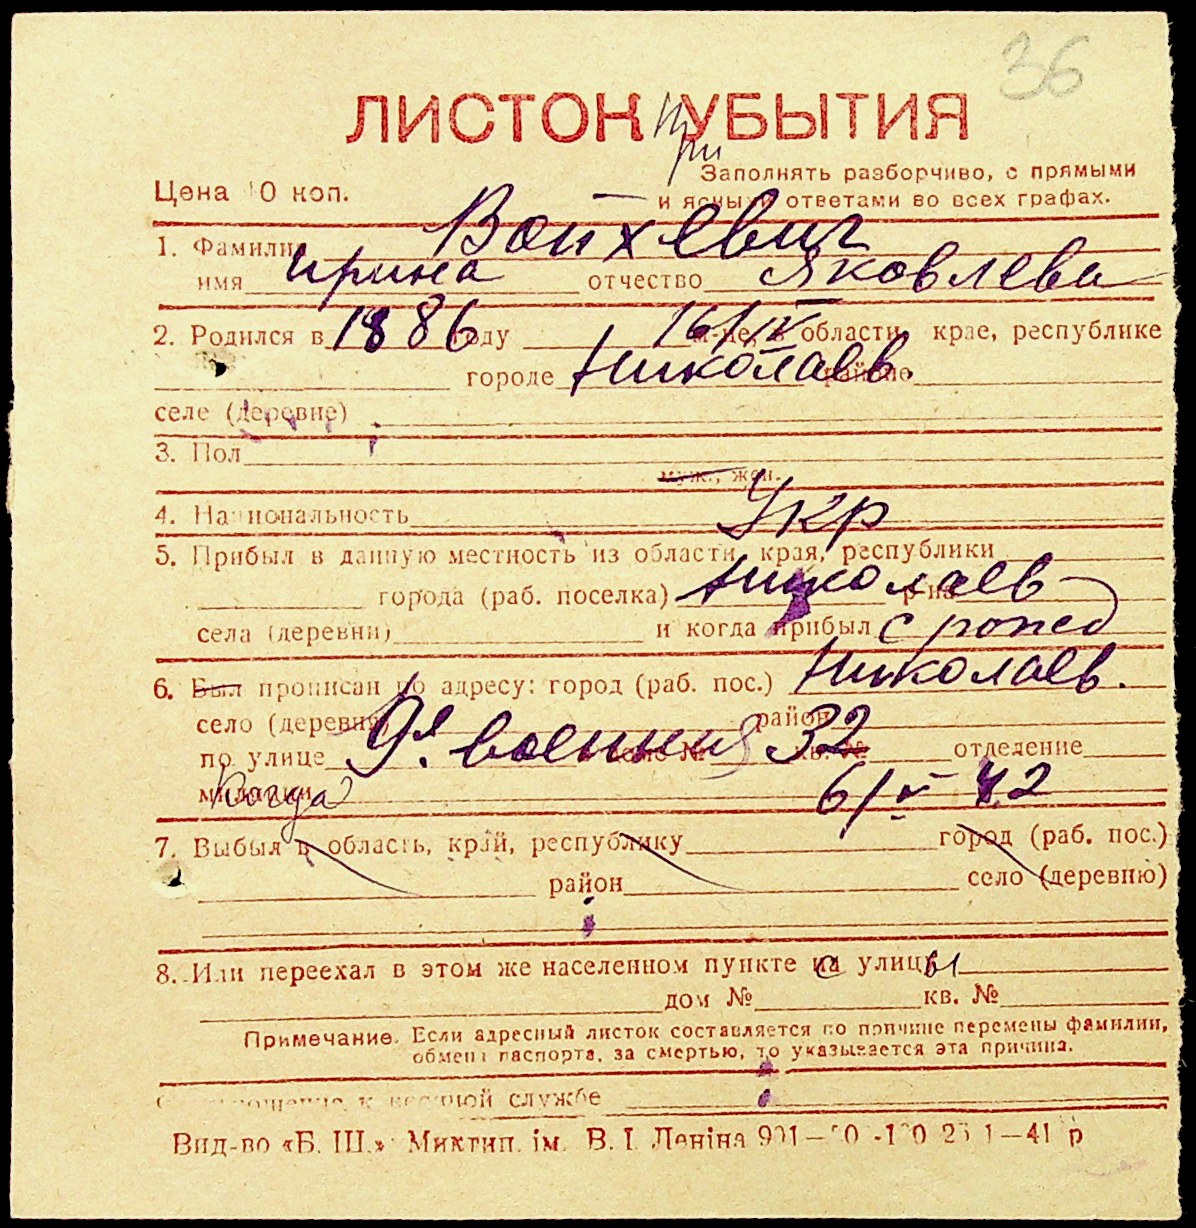 36
ЛИСТОК при УБЫТИЯ
Заполнять разборчиво, с прямыми
Цена 10 коп. и ясными ответами во всех графах.
1. Фамилия Войхевич
имя Ирина отчество Яковлева
2. Родился в 1886 году 16/IV м-це, в области, крае, республике
городе Николаев. районе
селе (деревне)
3. Пол
муж., жен.
4. Национальность Укр
5. Прибыл в данную местность из области, края, республики
города (раб. поселка) Николаев р-на
села (деревни) и когда прибыл с рожед
6. Был прописан по адресу: город (раб. пос.) Николаев.
село (деревня) район
по улице 9я военная доме № 32 кв. № отделение
милиции Когда 6/V 42
7. Выбыл в область, край, республику город (раб. пос.)
район село (деревню)
8. Или переехал в этом же населенном пункте с улицы
дом № кв. №
Примечание. Если адресный листок составляется по причине перемены фамилии,
обмена паспорта, за смертью, то указывается эта причина.
Отношение к военной службе
Вид-во «Б. Ш.» Миктип. ім. В. І. Леніна